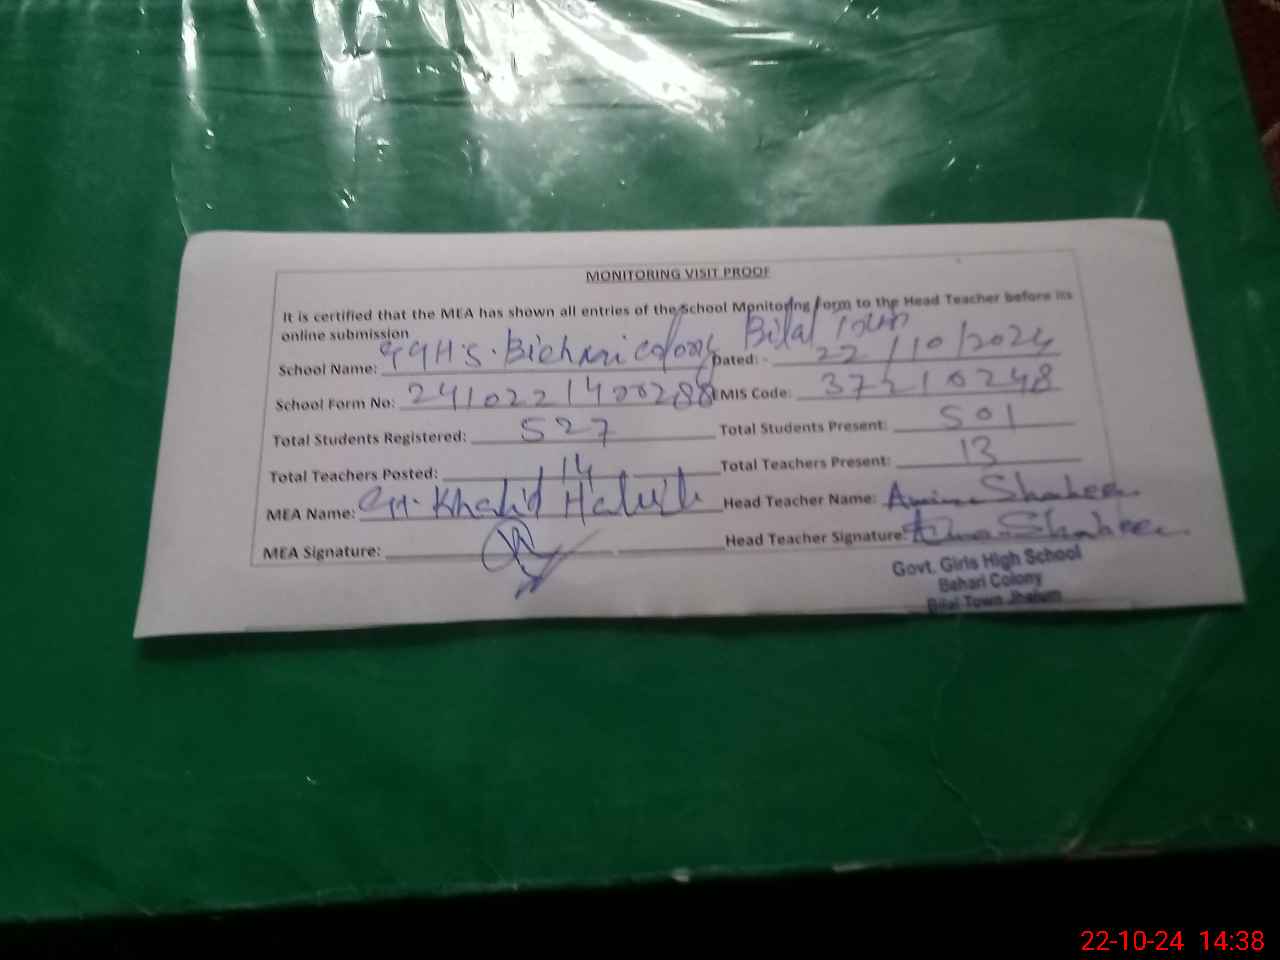 MONITORING VISIT PROOF
It is certified that the MEA has shown all entries of the School Monitoring Form to the Head Teacher before its
online submission
School Name: GGHS. Bichari colony Bilal Town Dated: - 22/10/2024
School Form No: 2410221400288 EMIS Code: 37210248
Total Students Registered: 527 Total Students Present: 501
Total Teachers Posted: 14 Total Teachers Present: 13
MEA Name: CH. Khalid Head Teacher Name: Shaheen
MEA Signature: Head Teacher Signature: Shaheen
Govt. Girls High School
Behari Colony
Bilal Town Jhelum
22-10-24 14:38